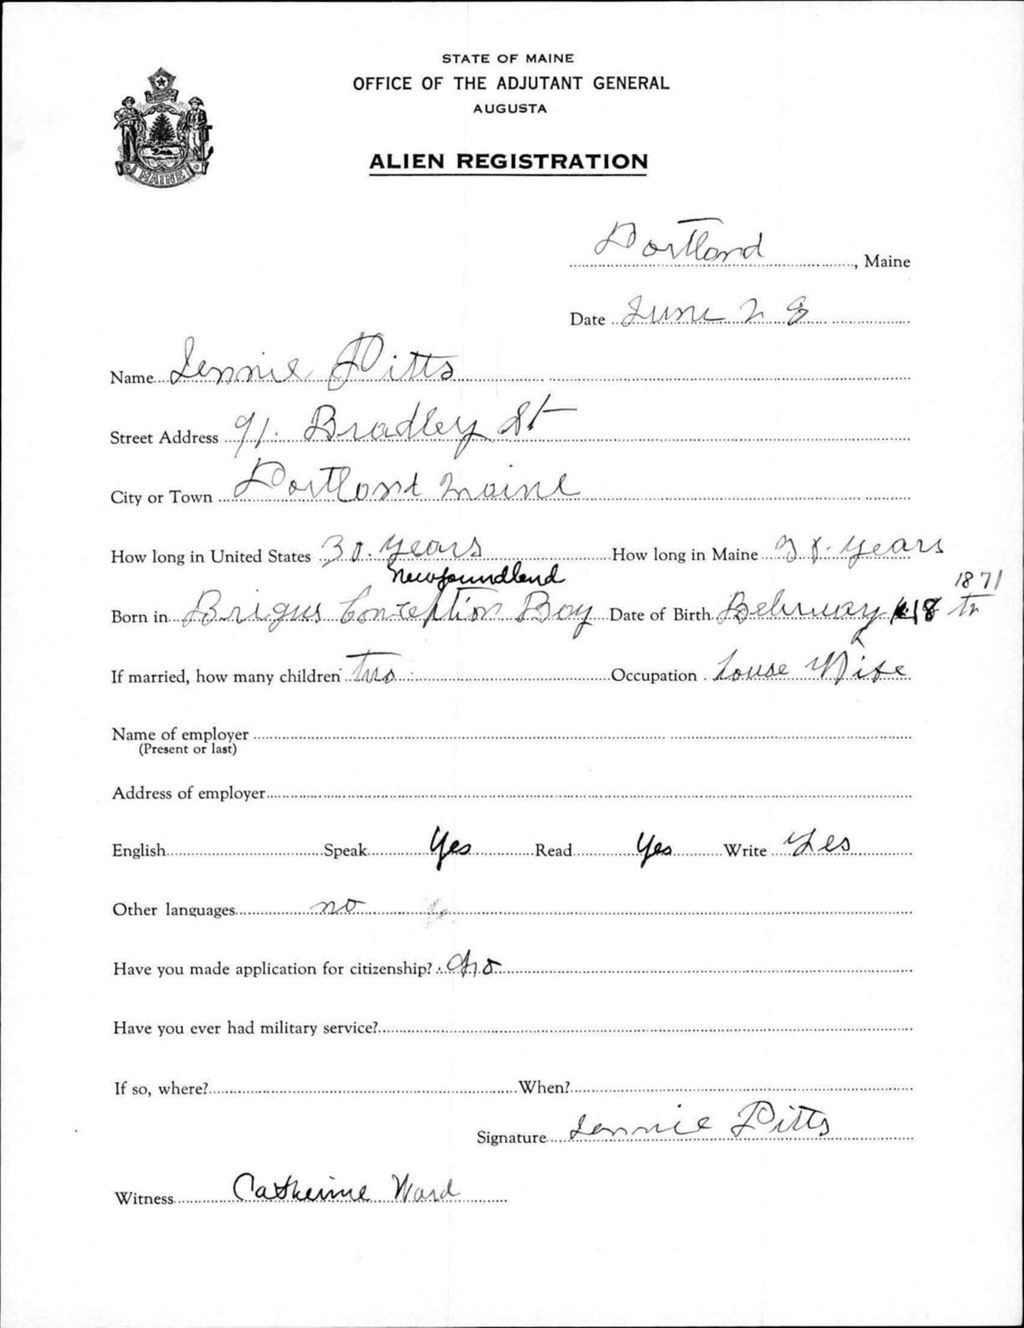 STATE OF MAINE
OFFICE OF THE ADJUTANT GENERAL
AUGUSTA
ALIEN REGISTRATION
MAINE
Portland, Maine
Date June 28
Name Jennie Pitts
Street Address 91. Bradley St
City or Town Portland Maine
How long in United States 30. years How long in Maine years
Newfoundland 1871
Born in Brigus Conception Bay Date of Birth Bebruary 18 th
If married, how many children two Occupation House Wife
Name of employer
(Present or last)
Address of employer
English Speak Yes Read Yes Write Yes
Other languages no
Have you made application for citizenship? No
Have you ever had military service?
If so, where? When?
Signature Jennie Pitts
Witness Catherine Ward